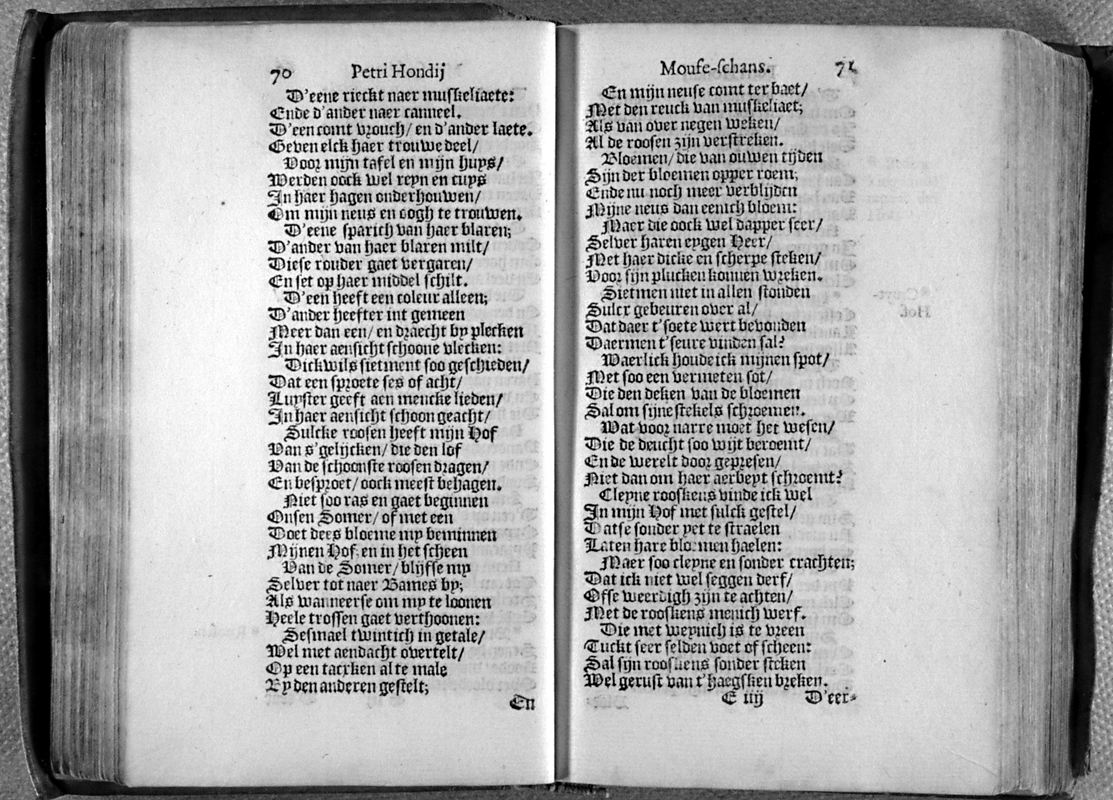 70 Petri Hondij
D'eene rieckt naer muskeliaete:
Ende d'ander naer canneel.
D'een comt vrouch/ en d'ander laete.
Geven elck haer trouwe deel/
Voor mijn tafel en mijn huys/
Werden oock wel reyn en cuys
In haer hagen onderhouwen/
Om mijn neus en oogh te trouwen.
D'eene sparich van haer blaren;
D'ander van haer blaren milt/
Diese ronder gaet vergaren/
En set op haer middel schilt.
D'een heeft een coleur alleen;
D'ander heefter int gemeen
Meer dan een/ en draecht by plecken
In haer aensicht schoone vlecken:
Dickwils sietment soo geschieden/
Dat een sproete ses of acht/
Luyster geeft aen mencke lieden/
In haer aensicht schoon geacht/
Sulcke roosen heeft mijn Hof
Van s'gelijcken/ die den lof
Van de schoonste roosen dragen/
En besproet/ oock meest behagen.
Niet soo ras en gaet beginnen
Onsen Somer/ of met een
Doet dees bloeme my beminnen
Mijnen Hof: en in het scheen
Van de Somer/ blijfse my
Selver tot naer Bames by;
Als wanneerse om my te loonen
Heele trossen gaet verthoonen:
Sesmael twintich in getale/
Wel met aendacht overtelt/
Op een tacxken al te male
By den anderen gestelt;
En
Mouse-schans. 71
En mijn neuse comt ter baet/
Met den reuck van muskeliaet;
Als van over negen weken/
Al de roosen zijn verstreken.
Bloemen/ die van ouwen tijden
Sijn der bloemen opper roem;
Ende nu noch meer verblijden
Mijne neus dan eenich bloem:
Maer die oock wel dapper seer/
Selver haren eygen Heer/
Met haer dicke en scherpe steken/
Voor sijn plucken konnen wreken.
Sietmen niet in allen stonden
Sulcx gebeuren over al/
Dat daer t'soete wert bevonden
Daermen t'seure vinden sal?
Waerlick houde ick mijnen spot/
Met soo een vermeten sot/
Die den deken van de bloemen
Sal om sijne stekels schroemen.
Wat voor narre moet het wesen/
Die de deucht soo wijt beroemt/
En de werelt door gepresen/
Niet dan om haer aerbeyt schroemt?
Cleyne rooskens vinde ick wel
In mijn Hof met sulck gestel/
Datse sonder yet te straelen
Laten hare bloemen haelen:
Maer soo cleyne en sonder crachten;
Dat ick niet wel seggen derf/
Ofse weerdigh zijn te achten/
Met de rooskens menich werf.
Die met weynich is te vreen
Tuckt seer selden voet of scheen:
Sal sijn rooskens sonder steken
Wel gerust van t'haegsken breken.
E iiij D'eer-